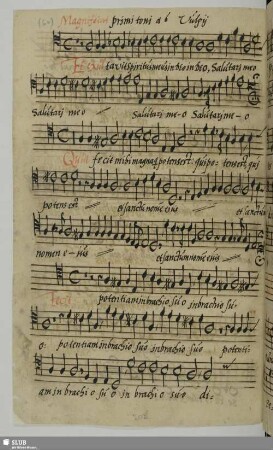 Magnificat primi toni a 6 Vulpij
Et exultavit spiritus meus in deo, Salutarj meo
Salutarj meo Salutarj me-o Salutarj me-o
Quia fecit mihi magna, potens est: qui potens est, qui
potens est et sanctū nomē eius et sanctū
nomen e-ius et sanctum nomē eius
Fecit potentiam in brachio suo in brachio su-
o: potentiam in brachio suo in brachio suo potenti-
am in brachi o su o in brachio suo di-
SLUB